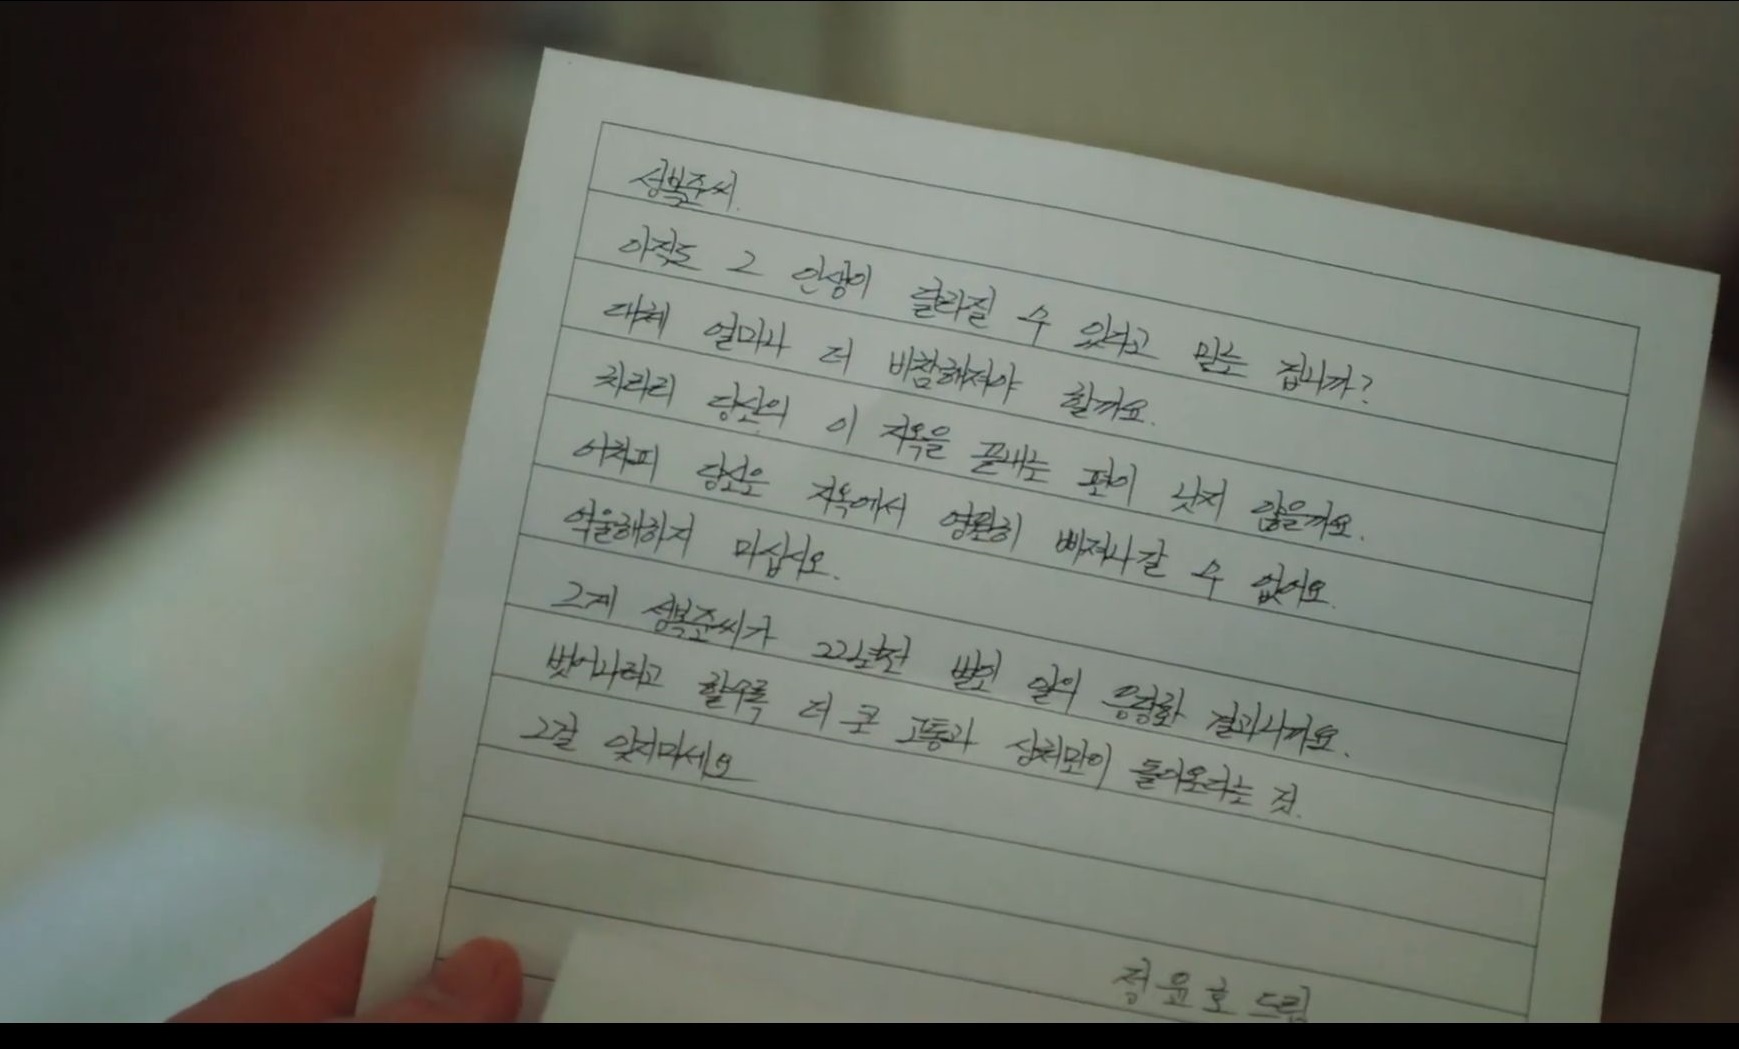 성복준씨.
아직도 그 인생이 달라질 수 있다고 믿는 겁니까?
대체 얼마나 더 비참해져야 할까요.
차라리 당신의 이 지옥을 끝내는 편이 낫지 않을까요.
어차피 당신은 지옥에서 영원히 빠져나갈 수 없어요.
억울해하지 마십시오.
그게 성복준씨가 22년전 벌인 일의 응당한 결과니까요.
벗어나려고 할수록 더 큰 고통과 상처만이 돌아온다는 것.
그걸 잊지마세요
정윤호 드림